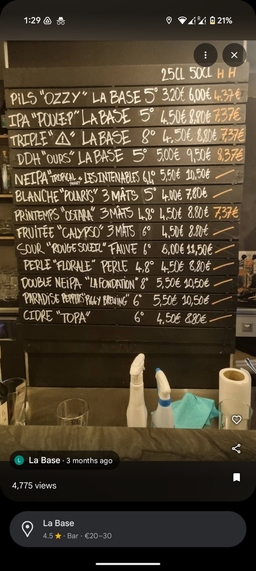 1:29
21%
25CL 50CL H H
PILS "OZZY" LA BASE 5° 3,20€ 6,00€ 4,37€
IPA "POULEP" LA BASE 5° 4,50€ 8,80€ 7,37€
TRIPLE "⚠" LA BASE 8° 4,50€ 8,80€ 7,37€
DDH "OURS" LA BASE 5° 5,00€ 9,50€ 8,37€
NEIPA "TROPICAL LES INTENABLES 6,1° 5,50€ 10,50€
BLANCHE "POLARIS" 3 MÂTS 5° 4,00€ 7,80€
PRINTEMPS "OSTARA" 3 MÂTS 4,8° 4,50€ 8,80€ 7,37€
FRUITÉE "CALYPSO" 3 MÂTS 6° 4,50€ 8,80€
SOUR "ROUGE SOLEIL" FAUVE 6° 6,00€ 11,50€
PERLE "FLORALE" PERLE 4,8° 4,50€ 8,80€
DOUBLE NEIPA "LA FONDATION" 8° 5,50€ 10,50€
PARADISE PEPPERS" PIGGY BREWING" 6° 5,50€ 10,50€
CIDRE "TOPA" 6° 4,50€ 8,80€
L La Base · 3 months ago
4,775 views
La Base
4.5 ★ · Bar · €20–30